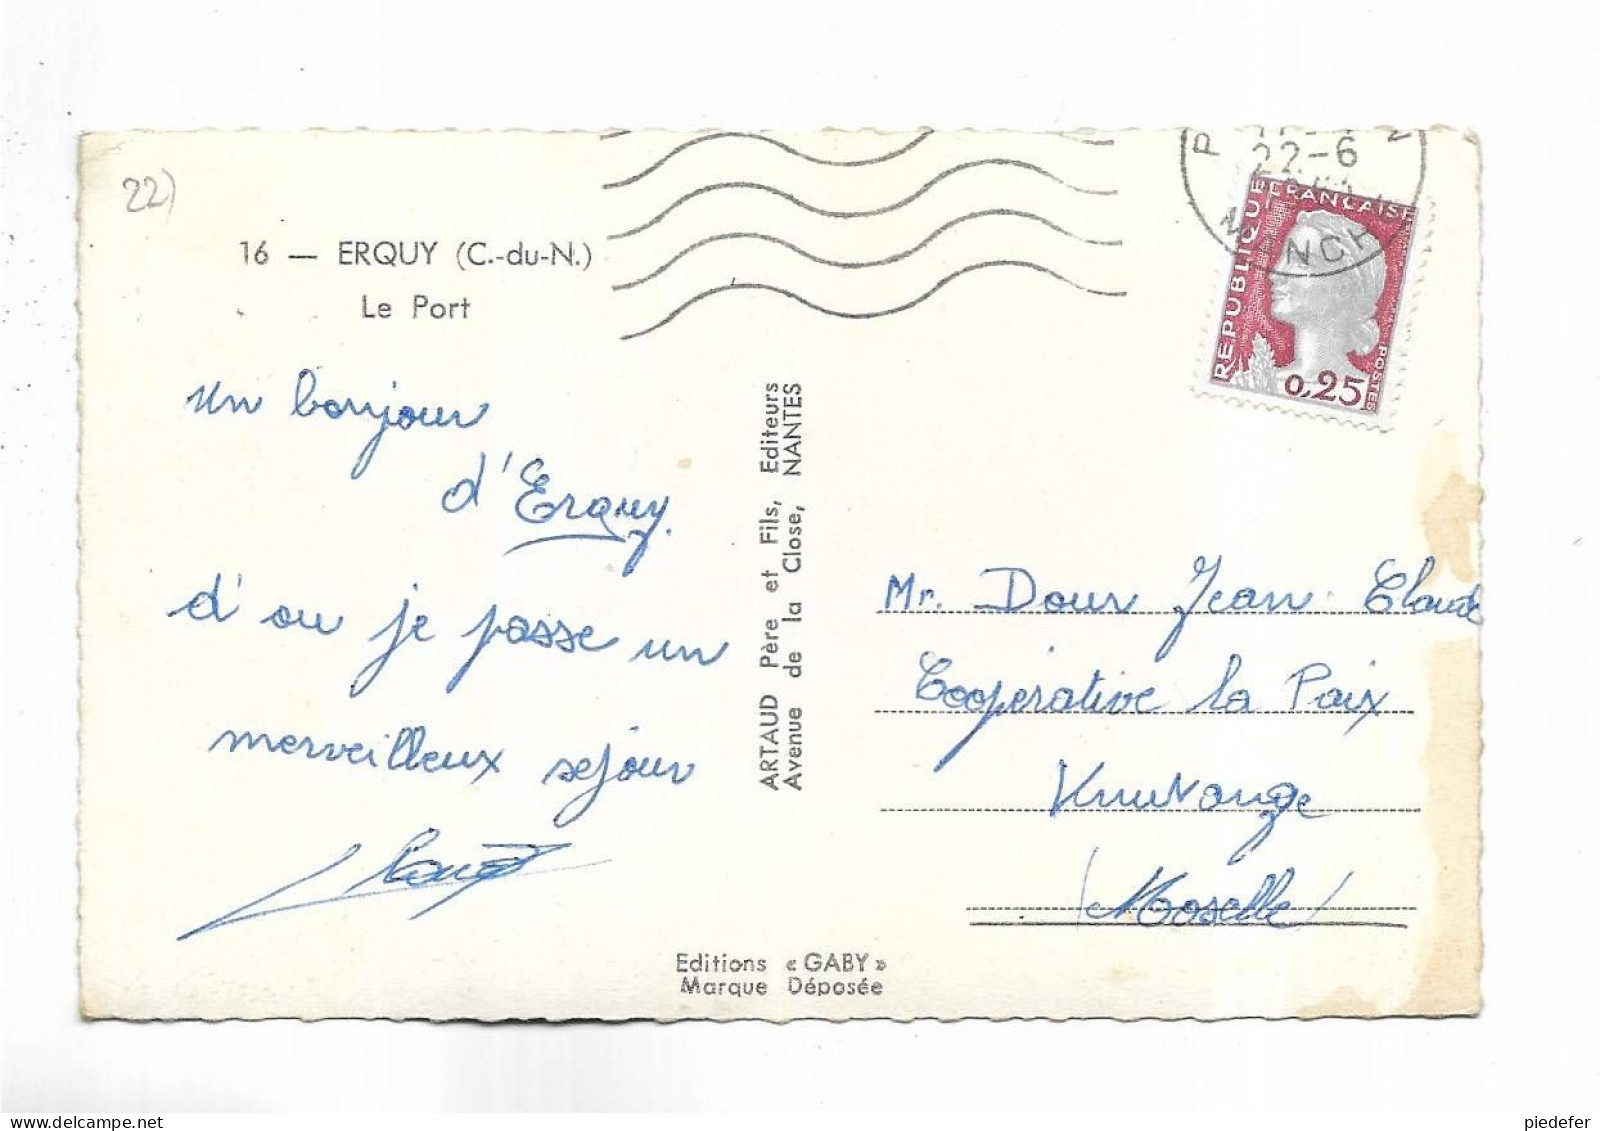 22)
16 — ERQUY (C.-du-N.)
Le Port
un bonjour
d'Erquy.
d'ou je passe un
merveilleux sejour
ARTAUD Père et Fils, Editeurs
Avenue de la Close, NANTES
Editions « GABY »
Marque Déposée
22-6
REPUBLIQUE FRANÇAISE
0,25
POSTES
Mr. Dour Jean Claude
Coopérative la Paix
Knutange
(Moselle)
delcampe.net
piedefer